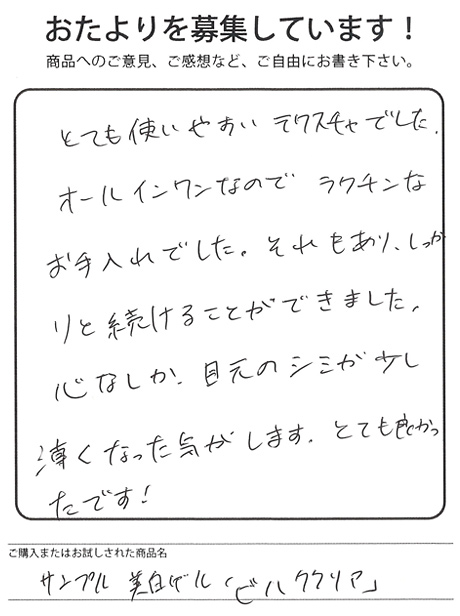 おたよりを募集しています！
商品へのご意見、ご感想など、ご自由にお書き下さい。
とても使いやすい テクスチャでした。
オールインワンなので ラクチンな
お手入れでした。それもあり、しっか
りと続けることができました。
心なしか、目元のシミが少し
薄くなった気がします。とても良かっ
たです！
ご購入またはお試しされた商品名
サンプル 美白ゲル「ビハククリア」